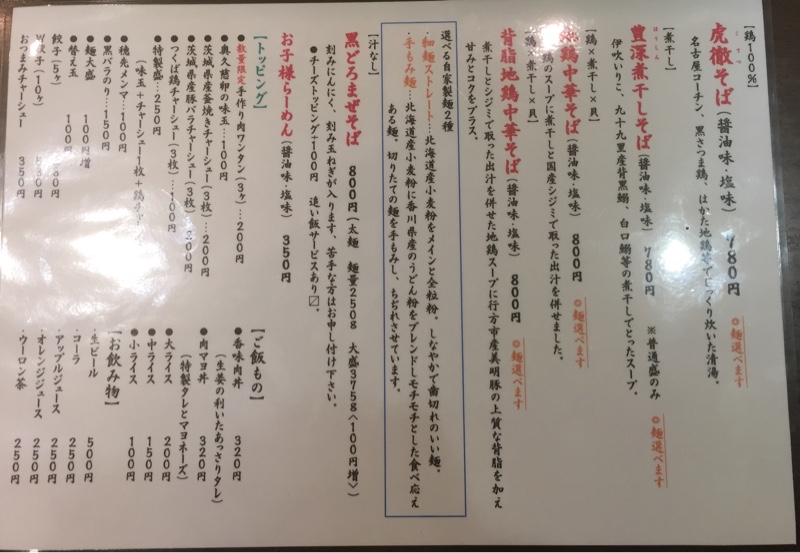 【鶏100%】
こてつ
虎徹そば（醤油味・塩味） 780円 ◎麺選べます
名古屋コーチン、黒さつま鶏、はかた地鶏等でじっくり炊いた清湯。
【煮干し】
ほうしん
豊深煮干しそば（醤油味・塩味） 780円 ※普通盛のみ ◎麺選べます
伊吹いりこ、九十九里産背黒鰯、白口鰯等の煮干しでとったスープ。
【鶏×煮干し×貝】
鶏中華そば（醤油味・塩味） 800円 ◎麺選べます
鶏のスープに煮干しと国産シジミで取った出汁を併せました。
鶏×煮干し×貝】
背脂地鶏中華そば（醤油味・塩味） 800円 ◎麺選べます
煮干しとシジミで取った出汁を併せた地鶏スープに行方市産美明豚の上質な背脂を加え
甘みとコクをプラス。
選べる自家製麺2種
・細麺ストレート…北海道産小麦粉をメインと全粒粉。しなやかで歯切れのいい麺。
・手もみ麺…北海道産小麦粉に香川県産のうどん粉をブレンドしモチモチとした食べ応え
ある麺。切りたての麺を手もみし、ちぢれさせています。
【汁なし】
黒どろまぜそば 800円（太麺 麺量250g 大盛375g〈100円増〉）
刻みにんにく、刻み玉ねぎが入ります、苦手な方はお申し付け下さい。
●チーズトッピング+100円 追い飯サービスあり〼。
お子様らーめん（醤油味・塩味） 350円
【トッピング】
●数量限定手作り肉ワンタン（3ヶ）…200円
●奥久慈卵の味玉…100円
●茨城県産釜焼きチャーシュー（3枚）…200円
●茨城県産豚バラチャーシュー（3枚）…200円
●つくば鶏チャーシュー（3枚）…100円
●特製盛…250円
（味玉+チャーシュー1枚+鶏
●穂先メンマ…100円
●黒バラのり…150円
●麺大盛 100円増
●替え玉 100円
餃子（5ヶ）
餃子（10ヶ）
おつまみチャーシュー 350円
【ご飯もの】
●香味肉丼 320円
（生姜の利いたあっさりタレ）
●肉マヨ丼 320円
（特製タレとマヨネーズ）
●大ライス 200円
●中ライス 150円
●小ライス 100円
【お飲み物】
・生ビール 500円
・コーラ 250円
・アップルジュース 250円
・オレンジジュース 250円
・ウーロン茶 250円